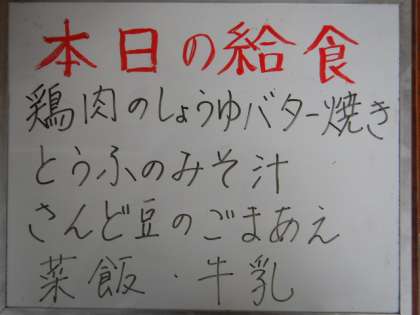 本日の給食
鶏肉のしょうゆバター焼き
とうふのみそ汁
さんど豆のごまあえ
菜飯・牛乳